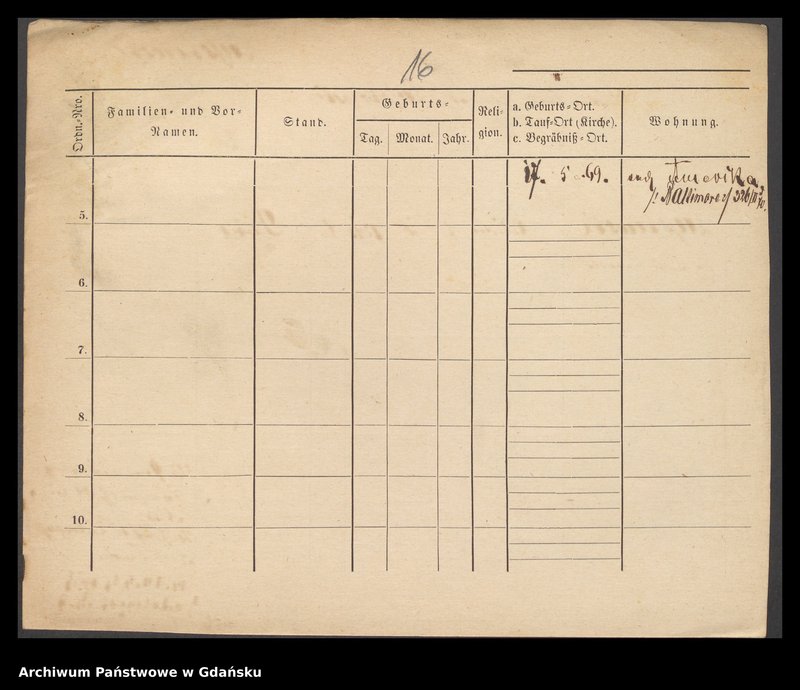 16
Ordn.-Nro.
Familien- und Vor-
Namen.
Stand.
Geburts-
Tag.
Monat.
Jahr.
Reli-
gion.
a. Geburts-Ort.
b. Tauf-Ort (Kirche).
c. Begräbniß-Ort.
Wohnung.
17. 5. 69.
5.
6.
7.
8.
9.
10.
Archiwum Państwowe w Gdańsku